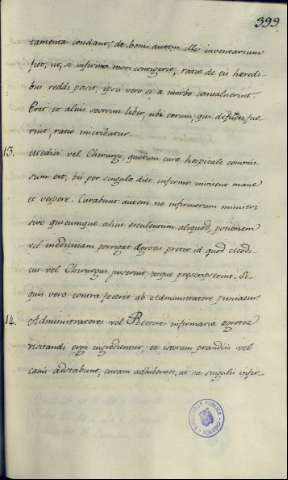 399
tamenta condant, de bonis autem illis inventarium
fiet, ut, si infirmo mori contigerit, ratio de eis heredi-
bus reddi possit, ipsi vero si a morbo convaluerint.
Erit et alius seorsum liber, ubi eorum, qui defuncti fue-
rint, ratio inscribatur.
13. Medici vel Chirurgi, quorum cure hospitale commis-
sum est, bis per singulos dies infirmos invisent mane
et vespere. Curabunt autem ne infirmorum ministri
sive quicumque alius esculentum aliquod, potionem
vel medicinam porrigat egrotis preter id quod Medi-
cus vel Chirurgus juserint
quis vero contra fecerit ab Administratore puniatur
14. Administratores vel Rectores infirmaria egrotos
visitandi ergo ingredientur, et eorum prandiis vel
cenis adstabunt, curam adhibentes, ut ne singulis infir-